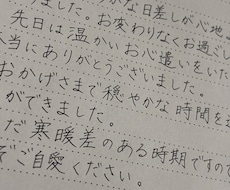 な日差しが心地
りました。お変わりなくお過ごし
先日は温かいお心遣いをいた
当にありがとうございました。
おかげさまで穏やかな時間を
ができました。
だ寒暖差のある時期ですので
ご自愛ください。